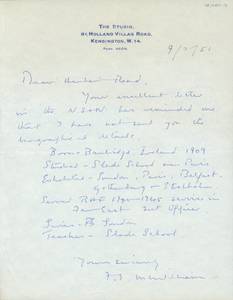 THE STUDIO,
8I, HOLLAND VILLAS ROAD,
KENSINGTON, W.14.
PARK
Dear Herbert Read,
Your excellent letter
in the N.S. & N. has reminded me
that I have not sent you the
biographical details.
Born - Banbridge, Ireland 1909
Studied - Slade School and Paris
Exhibited - London, Paris, Belfast,
Gothenburg & Stockholm
Served RAF 1940-1945 service in
Far East
Lives - London
Teacher - Slade School
Yours sincerely
F.E. McWilliam